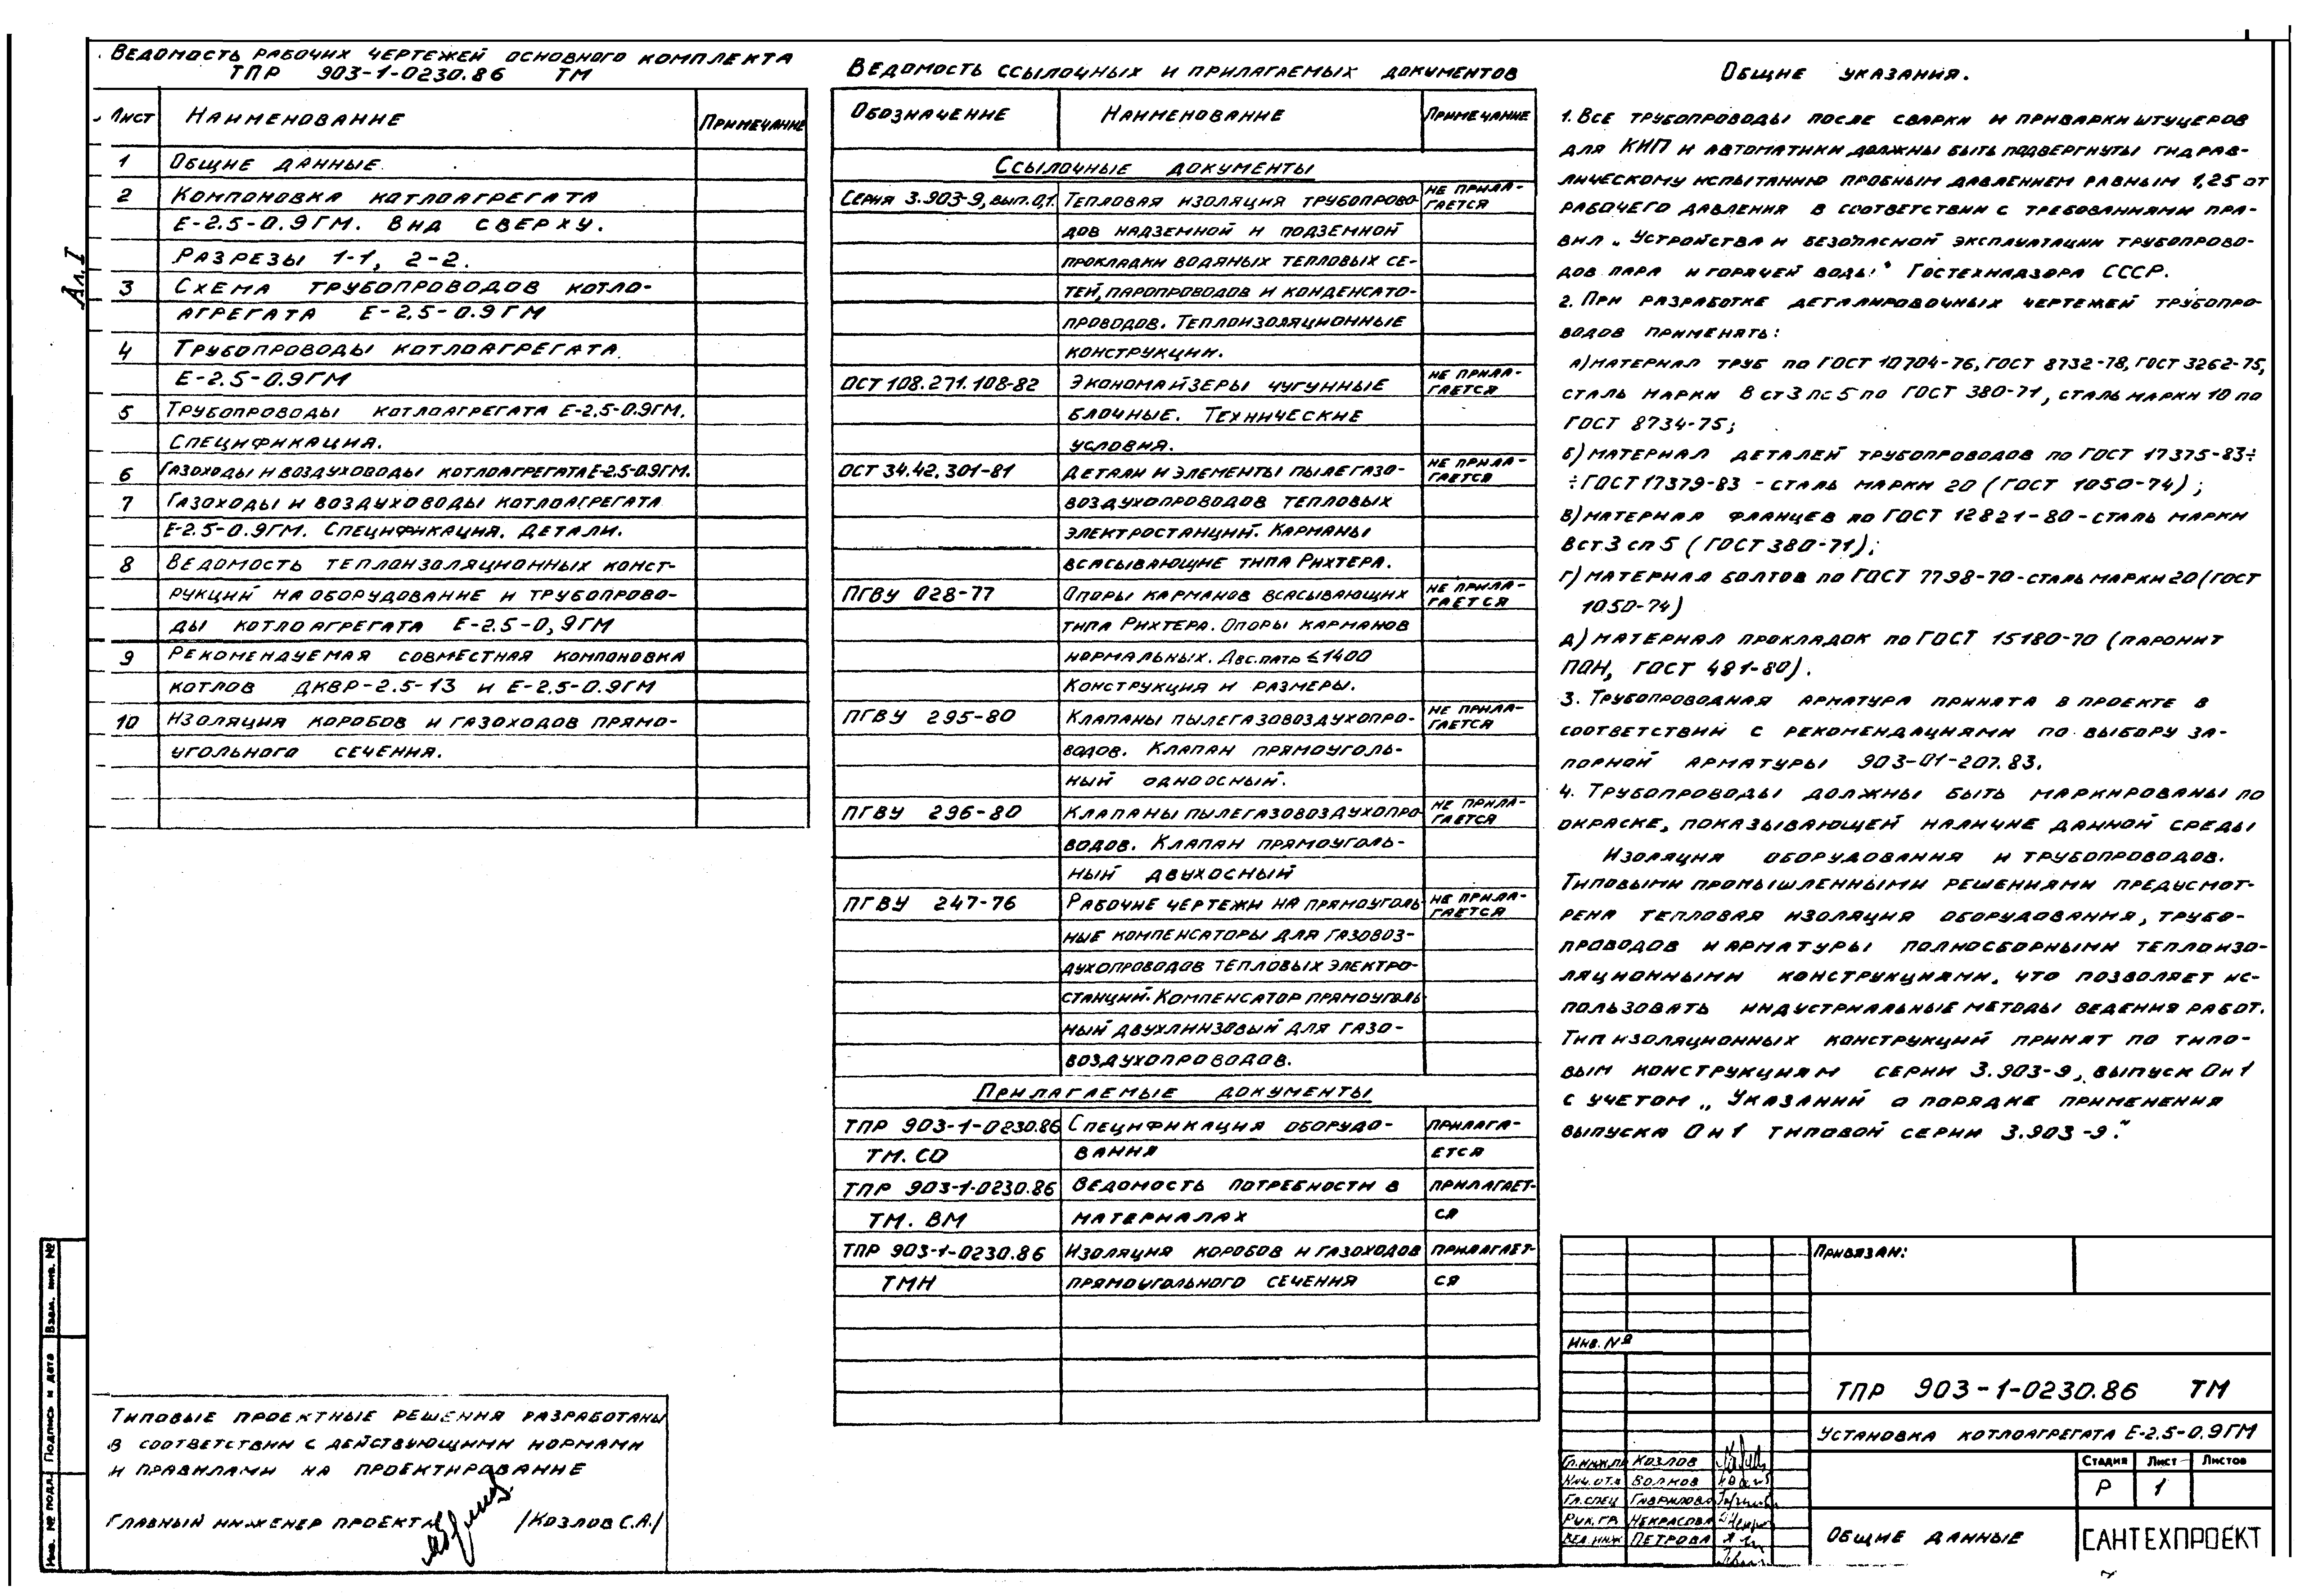 Ал. I
Ведомость рабочих чертежей основного комплекта
ТПР 903-1-0230.86 ТМ
Лист Наименование Примечание
1 Общие данные.
2 Компоновка котлоагрегата
Е-2.5-0.9ГМ. Вид сверху.
Разрезы 1-1, 2-2.
3 Схема трубопроводов котло-
агрегата Е-2.5-0.9ГМ
4 Трубопроводы котлоагрегата
Е-2.5-0.9ГМ
5 Трубопроводы котлоагрегата Е-2.5-0.9ГМ.
Спецификация.
6 Газоходы и воздуховоды котлоагрегата Е-2.5-0.9ГМ.
7 Газоходы и воздуховоды котлоагрегата
Е-2.5-0.9ГМ. Спецификация. Детали.
8 Ведомость теплоизоляционных конст-
рукций на оборудование и трубопрово-
ды котлоагрегата Е-2.5-0,9ГМ
9 Рекомендуемая совместная компановка
котлов ДКВР-2.5-13 и Е-2.5-0.9ГМ
10 Изоляция коробов и газоходов прямо-
угольного сечения.
Типовые проектные решения разработаны
в соответствии с действующими нормами
и правилами на проектирование
Главный инженер проекта /Козлов С.А./
Ведомость ссылочных и прилагаемых документов
Обозначение Наименование Примечание
Ссылочные документы
Серия 3.903-9, вып.0,1. Тепловая изоляция трубопрово- не прила-
гается
дов надземной и подземной
прокладки водяных тепловых се-
тей, паропроводов и конденсато-
проводов. Теплоизоляционные
конструкции.
ОСТ 108.271.108-82 Экономайзеры чугунные не прила-
гается
блочные. Технические
условия.
ОСТ 34.42.301-81 Детали и элементы пылегазо- не прила-
гается
воздухопроводов тепловых
электростанций. Карманы
всасывающие типа Рихтера.
ПГВУ 028-77 Опоры карманов всасывающих не прила-
гается
типа Рихтера. Опоры карманов
нормальных. Двс.патр ≤1400
Конструкция и размеры.
ПГВУ 295-80 Клапаны пылегазовоздухопро- не прила-
гается
водов. Клапан прямоуголь-
ный одноосный.
ПГВУ 296-80 Клапаны пылегазовоздухопро не прила-
гается
водов. Клапан прямоуголь-
ный двухосный
ПГВУ 247-76 Рабочие чертежи на прямоуголь не прила-
гается
ные компенсаторы для газовоз-
духопроводов тепловых электро-
станций. Компенсатор прямоуголь
ный двухлинзовый для газо-
воздухопроводов.
Прилагаемые документы
ТПР 903-1-0230.86 Спецификация оборудо- прилага-
ТМ.СО вания ется
ТПР 903-1-0230.86 Ведомость потребности в прилагает-
ТМ. ВМ материалах ся
ТПР 903-1-0230.86 Изоляция коробов и газоходов прилагает-
ТМН прямоугольного сечения ся
Общие указания.
1. Все трубопроводы после сварки и приварки штуцеров
для КИП и автоматики должны быть подвергнуты гидрав-
лическому испытанию пробным давлением равным 1,25 от
рабочего давления в соответствии с требованиями пра-
вил „Устройства и безопасной эксплуатации трубопрово-
дов пара и горячей воды" Гостехнадзора СССР.
2. При разработке деталировочных чертежей трубопро-
водов применять:
а) материал труб по ГОСТ 10704-76, ГОСТ 8732-78, ГОСТ 3262-75,
сталь марки Вст3пс5 по ГОСТ 380-71, сталь марки 10 по
ГОСТ 8734-75;
б) материал деталей трубопроводов по ГОСТ 17375-83÷
÷ГОСТ 17379-83 - сталь марки 20 (ГОСТ 1050-74);
в) материал фланцев по ГОСТ 12821-80 - сталь марки
Вст3сп5 (ГОСТ 380-71);
г) материал болтов по ГОСТ 7798-70 - сталь марки 20 (ГОСТ
1050-74)
д) материал прокладок по ГОСТ 15180-70 (паронит
ПОН, ГОСТ 481-80).
3. Трубопроводная арматура принята в проекте в
соответствии с рекомендациями по выбору за-
порной арматуры 903-01-207.83.
4. Трубопроводы должны быть маркированы по
окраске, показывающей наличие данной среды
Изоляция оборудования и трубопроводов.
Типовыми промышленными решениями предусмот-
рена тепловая изоляция оборудования, трубо-
проводов и арматуры полносборными теплоизо-
ляционными конструкциями, что позволяет ис-
пользовать индустриальные методы ведения работ.
Тип изоляционных конструкций принят по типо-
вым конструкциям серии 3.903-9, выпуск 0 и 1
с учетом „Указаний о порядке применения
выпуска 0 и 1 типовой серии 3.903-9."
Привязан:
Инв. №
ТПР 903-1-0230.86 ТМ
Установка котлоагрегата Е-2.5-0.9ГМ
Гл.инж.пр Козлов
Нач.от. Волков
Гл.спец Гаврилова
Рук.гр. Некрасова
Вед.инж Петрова
Стадия Лист Листов
Р 1
Общие данные
САНТЕХПРОЕКТ
Взам. инв. №
Подпись и дата
Инв. № подл.